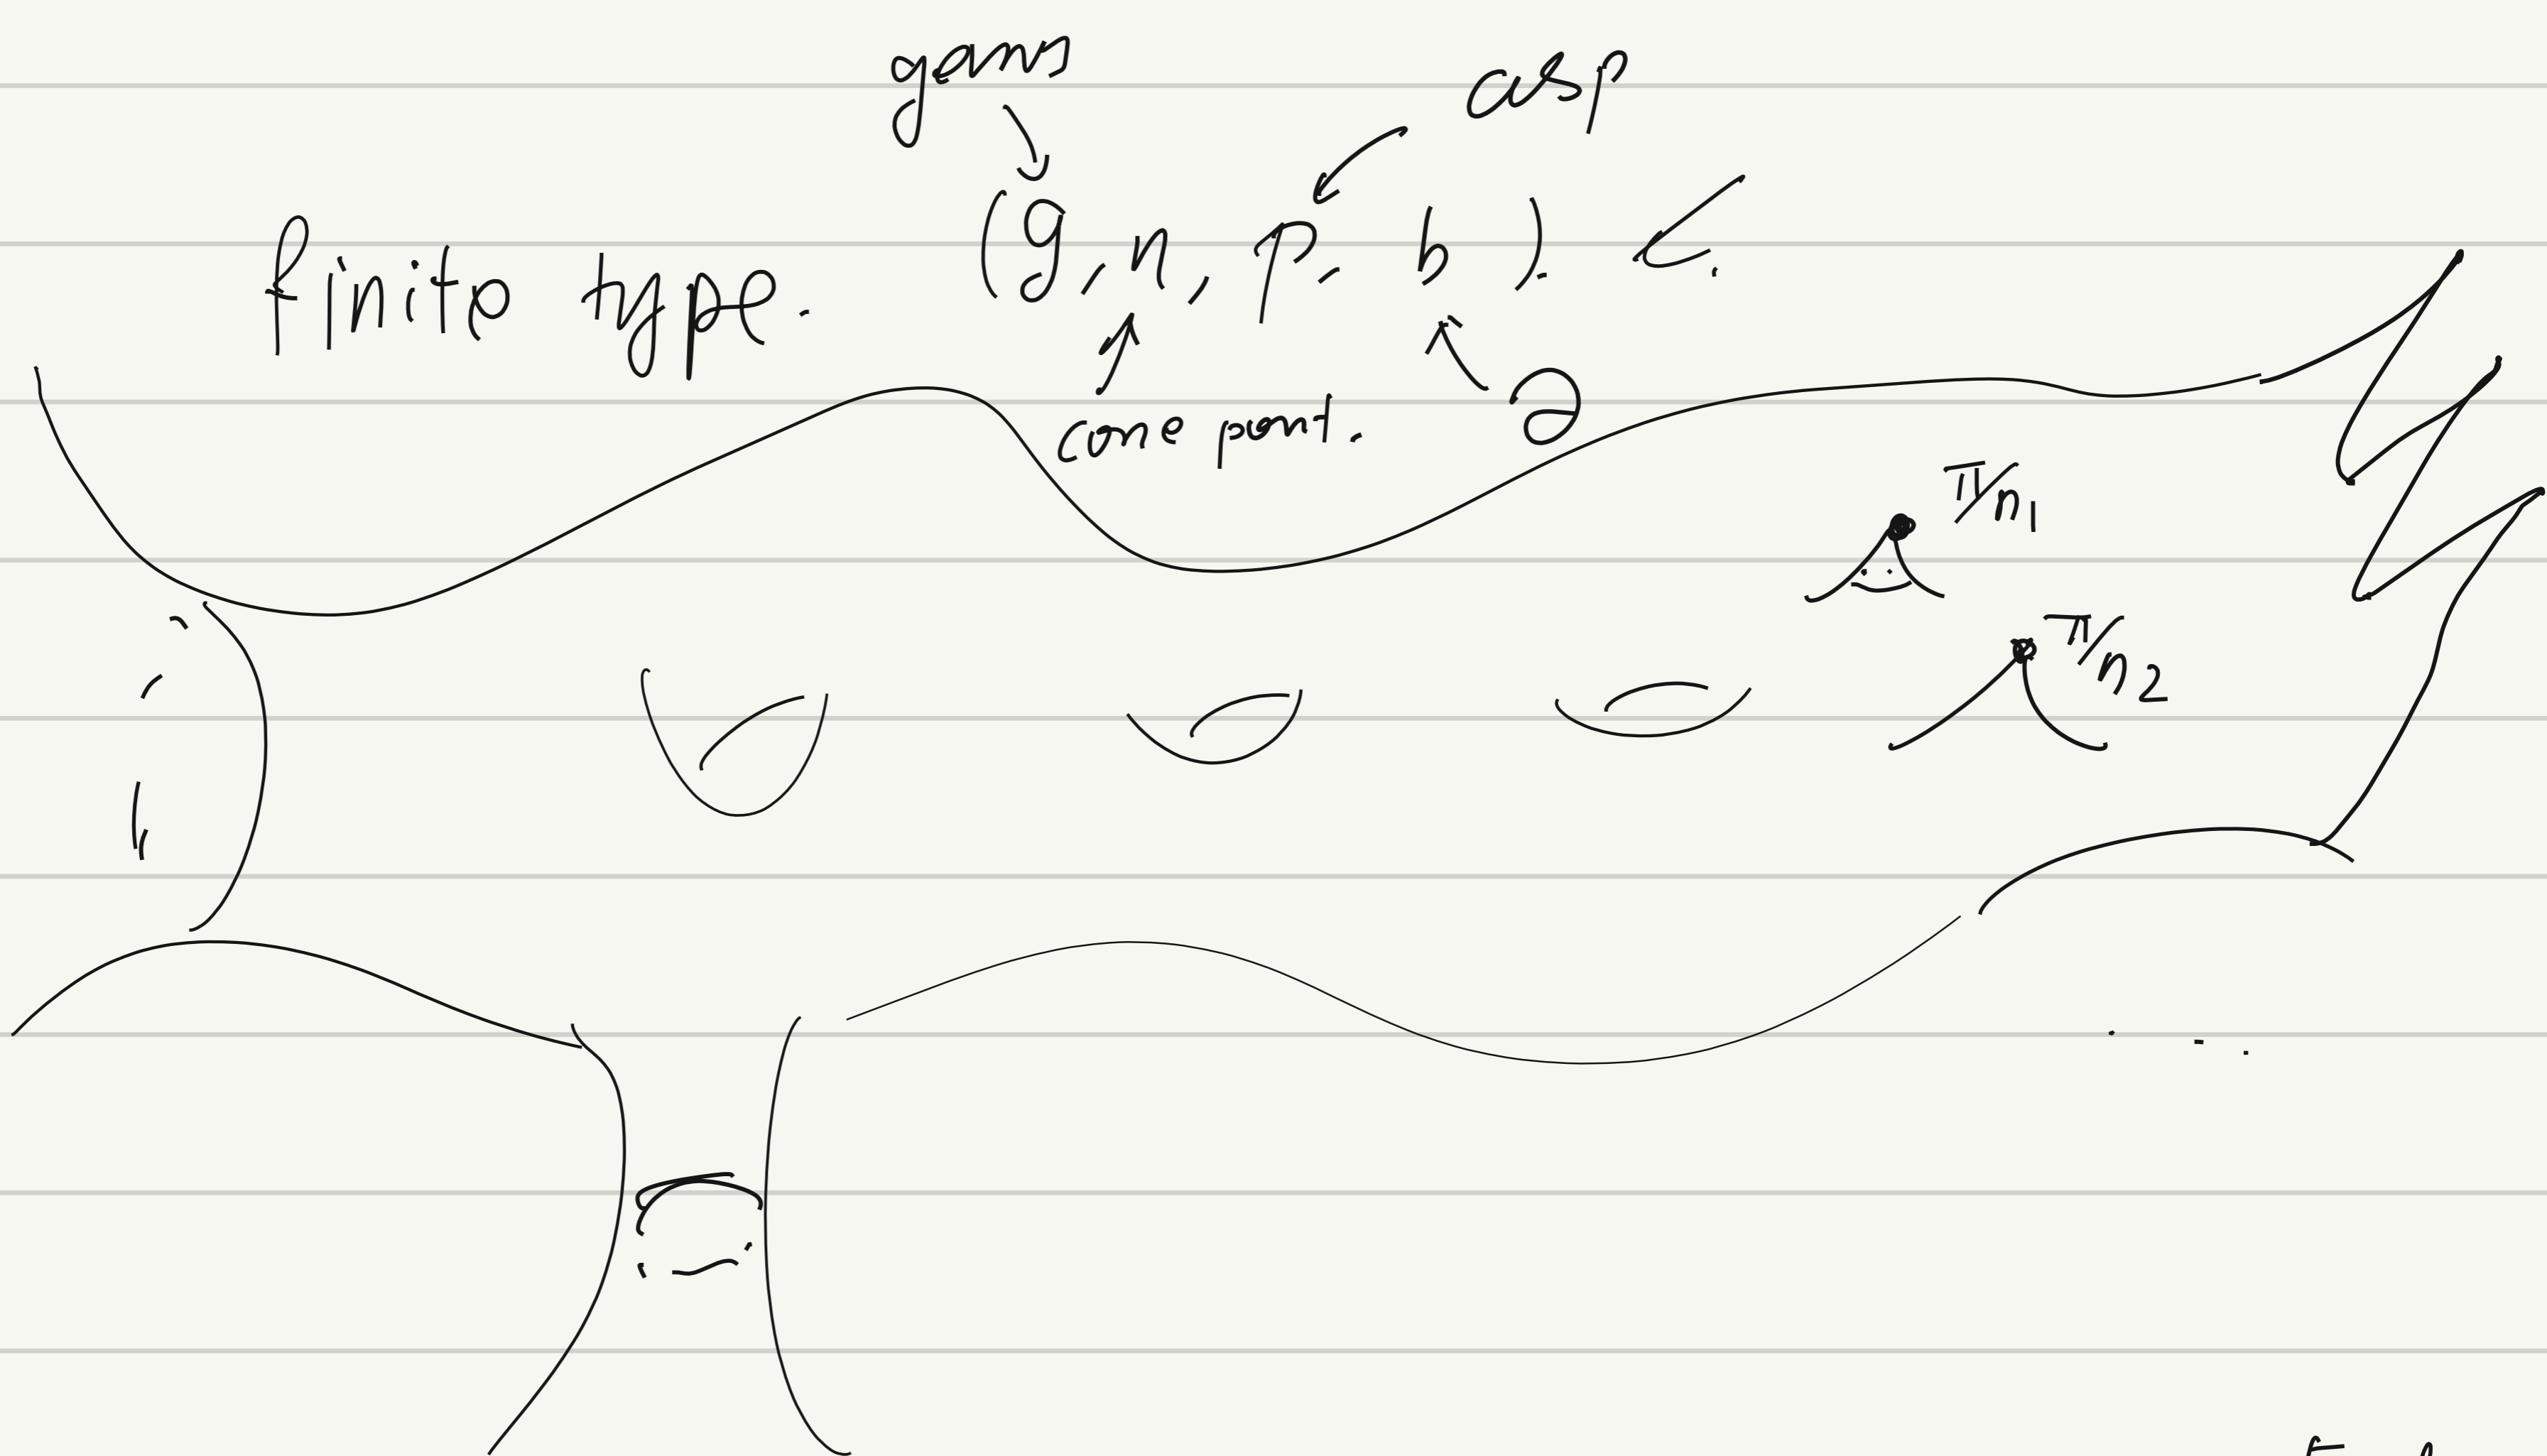 genus cusp
finite type. (g, n, p, b).
cone point. ∂
π/n1
π/n2